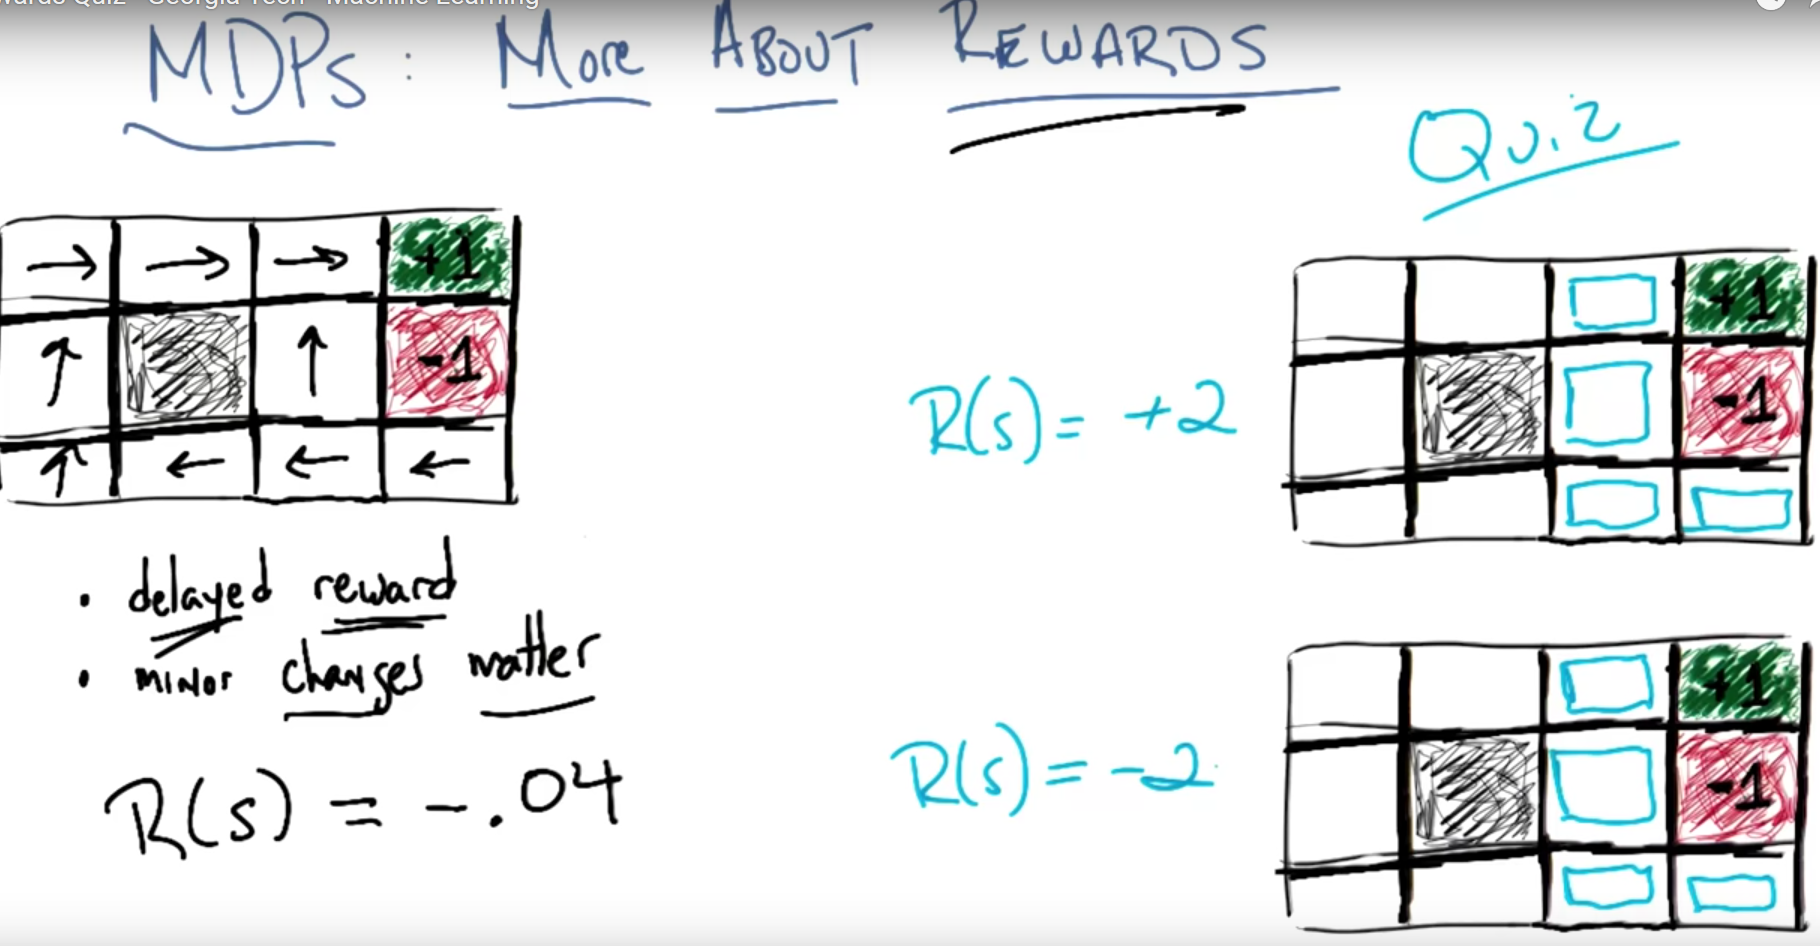 wards Quiz - Georgia Tech - Machine Learning
MDPs: More About Rewards
Quiz
→ → → +1
↑ ↑ -1
↑ ← ← ←
• delayed reward
• minor changes matter
R(s) = -.04
R(s) = +2
+1
-1
R(s) = -2
+1
-1